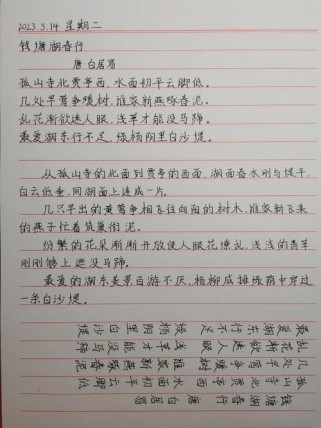 2023.3.14 星期二
钱塘湖春行
唐·白居易
孤山寺北贾亭西，水面初平云脚低。
几处早莺争暖树，谁家新燕啄春泥。
乱花渐欲迷人眼，浅草才能没马蹄。
最爱湖东行不足，绿杨阴里白沙堤。
从孤山寺的北面到贾亭的西面，湖面春水刚与堤平，
白云低垂，同湖面上连成一片。
几只早出的黄莺争相飞往向阳的树木，谁家新飞来
的燕子忙着筑巢衔泥。
纷繁的花朵渐渐开放使人眼花缭乱，浅浅的青草
刚刚够上遮没马蹄。
最爱的湖东美景百游不厌，杨柳成排绿荫中穿过
一条白沙堤。
钱塘湖春行 唐 白居易
孤山寺北贾亭西 水面初平云脚低
几处早莺争暖树 谁家新燕啄春泥
乱花渐欲迷人眼 浅草才能没马蹄
最爱湖东行不足 绿杨阴里白沙堤